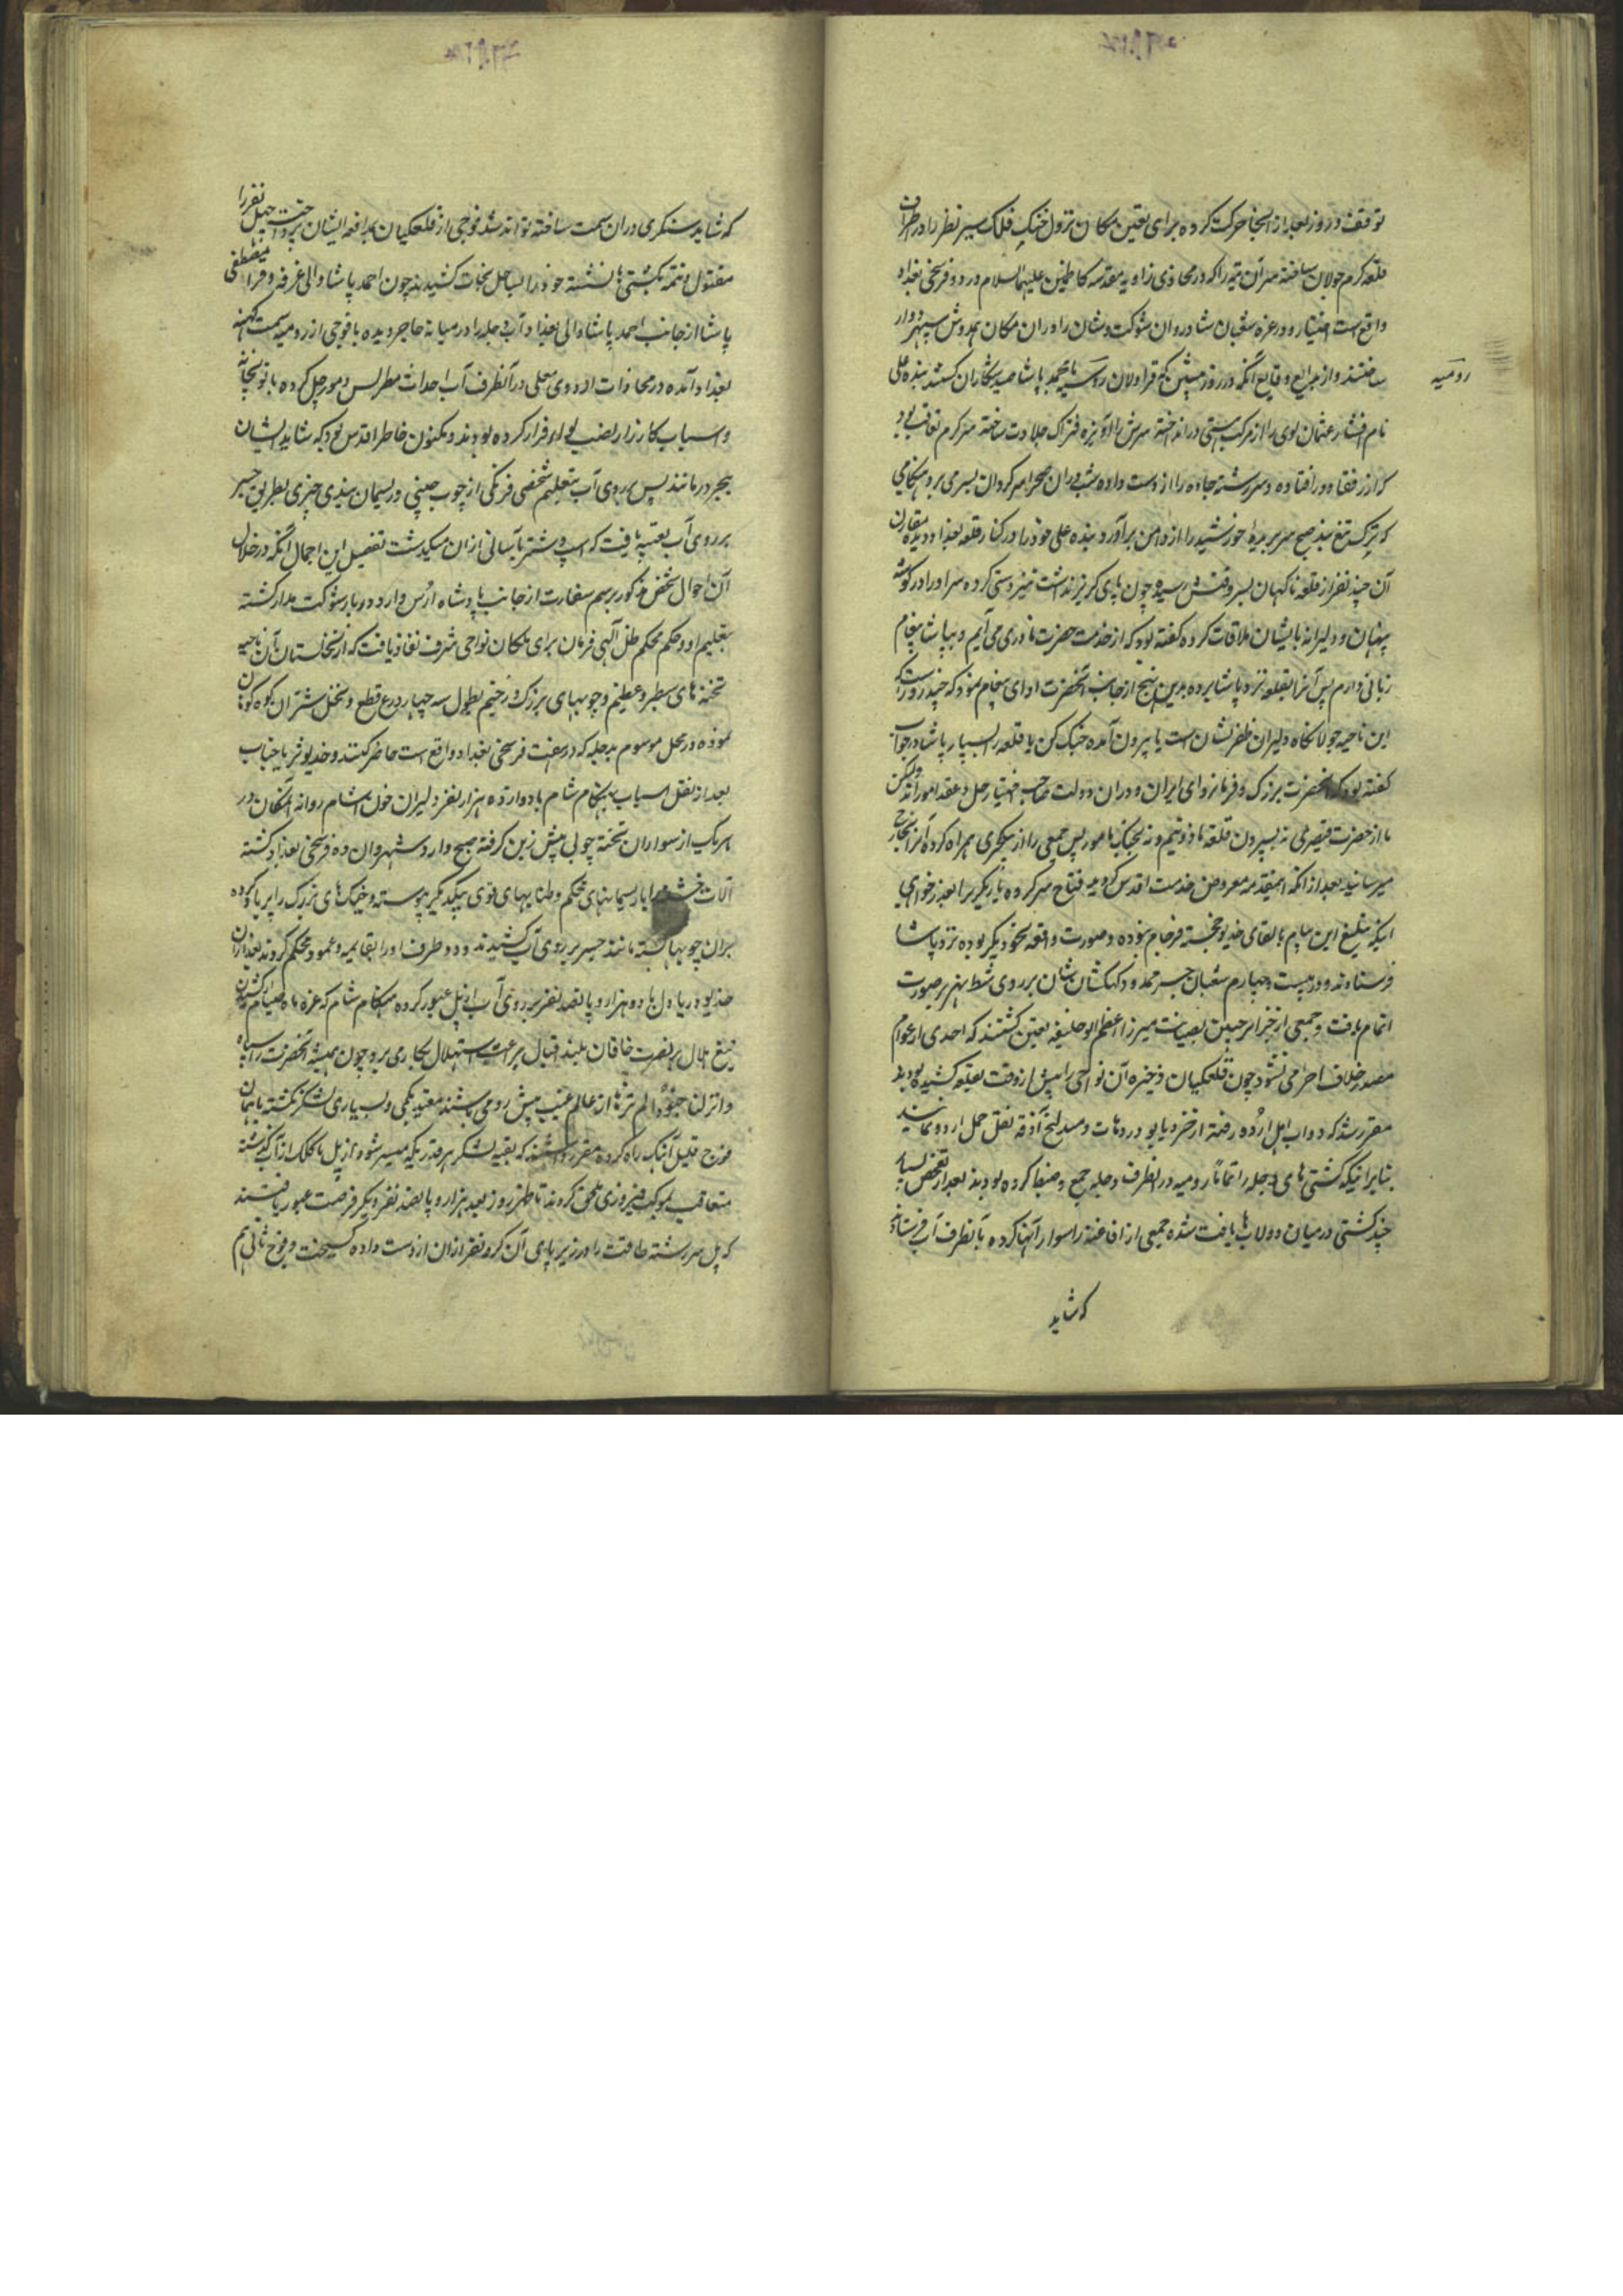 توقف و روز بعد از انجا حرکت کرده برای تعیین مکان نزول خنک فلک سیر نظر را در اطراف
قلعه کرم جولان ساخته سر آن تپه را که در محاذی زاویه مقدسه کاظمین علیهما السلام در دو فرسخی بغداد
واقع است اختیار و در غره شعبان شادروان شوکت و شان را در آن مکان همدوش سپهر دوار
ساختند و از بدایع وقایع آنکه در روز پیش که قراولان رومیه با محمد پاشا صید شکاران کشتند بنده علی
رومیه
نام افشار عثمان لوی را از مرکب هستی در انداخته سرش را آویزه فتراک جلادت ساخته سر کرم تعاقب بود
که از رفقا دور افتاده و سر رشته جاده را از دست داده شب در آن صحرا سر کردان بسر می برد هنکامی
که ترک تیغ بند صبح سر بریده خورشید را از دامن برآورد بنده علی خود را در کنار قلعه بغداد دیده مقارن
آن چند نفر از قلعه ناکهان بسر وقتش رسیده چون پای کریز نداشت تیز دستی کرده سر را در کوشه
پنهان و دلیرانه با ایشان ملاقات کرده کفته بود که از خدمت حضرت نادری می آیم و بپاشا پیغام
زبانی دارم پس او را بقلعه نزد پاشا برده بدین نهج از جانب آنحضرت ادای پیغام نمود که چند روز است که
این ناحیه جولانکاه دلیران ظفر نشان است یا بیرون آمده جنک کن یا قلعه را بسپار پاشا در جواب
کفته بود که آنحضرت بزرک و فرمانروای ایران و در آن دولت صاحب اختیار حل و عقد امور اند و لیکن
ما از حضرت قیصری نه بسپردن قلعه ماذونیم و نه بجنک مامور پس جمعی را از ینکچری همراه کرده او را بخارج
میرسانند بعد از آنکه اینمقدمه معروض خدمت اقدس کردید فتاح سر کرده ینکچری را بعذر خواهی
اینکه تبلیغ این پیام بالقای خدیو خجسته فرجام نبوده و صورت واقعه بنحو دیکر بوده نزد پاشا
فرستادند و در بیست و چهارم شعبان جسر ممدود کهکشان نشان بر روی شط بهرز صورت
اتمام یافت و جمعی از جزایرچیان بصیانت میرزا اعظم ابو حنیفه تعیین کشتند که احدی از عوام
مصدر خلاف احترامی نشود چون قلعکیان ذخیره آن نواحی را پیش از وقت بقلعه کشیده بودند
مقرر شد که دواب اهل اردو رفته از خزر و یابو و دهات و مندلیج آذقه نقل و حمل اردو نمایند
بنا بر اینکه کشتی های دجله را تماما رومیه در انطرف دجله جمع و ضبط کرده بودند بعد از تفحص بسیار
چند کشتی در میان دولاب ها یافت شده جمعی از افاغنه را سوار آنها کرده بآنطرف آب فرستاد
که شاید
که شاید سنکری در ان سمت ساخته توانند شد فوجی از قلعکیان بمدافعه ایشان پرداخت چهل نفر را
مقتول و تتمه بکشتی ها نشسته خود را بساحل نجات کشیدند چون احمد پاشا والی غرفه و قرا مصطفی
پاشا از جانب احمد پاشا والی بغداد آب دجله را در میانه حاجز دیده با فوجی از رومیه بسمت کهنه
بغداد آمده در محاذات اردوی معلی در آنطرف آب احداث مطریس و مورچل کرده با توپخانه
و اسباب کارزار نصب لوای قرار کرده بودند و مکنون خاطر اقدس بود که شاید ایشان
بیجبر درمانند پس بر روی آب بتعلیم شخصی فرنکی از چوب چینی و ریسمان بندی چیزی بطریق جسر
بر روی آب تعبیه یافت که اسب و شتر بآسانی از ان میکذشت تفصیل این اجمال آنکه در خلال
آن احوال شخص مذکور برسم سفارت از جانب پادشاه ارس وارد دربار شوکت مدار کشته
بتعلیم او و حکم محکم ظل الهی فرمان برای سکان نواحی شرف نفاذ یافت که از نخلستان آن ناحیه
تخته های سطبر و عظیم و چوبهای بزرک و ضخیم بطول سه چهار ذرع قطع و بنخل شتران کوه کوهان
نموده در محل موسوم بدجله که در هفت فرسخی بغداد واقع است حاضر کنند و خدیو ثریا جناب
بعد از نقل اسباب هنکام شام با دوازده هزار نفر دلیران خون آشام روانه آنمکان و در
هر یک از سواران تخته چوبی پیش زین کرفته صبح وارد شهروان ده فرسخی بغداد کشته
آلات خشب را با ریسمانهای محکم و طنابهای قوی بیکدیکر پیوسته و خیک های بزرک را پر باد کرده
بران چوبها بسته مانند جسر بر روی آب کشیدند و دو طرف او را بقایمه و عمود محکم کردند بعد از ان
خدیو دریا دل با دو هزار و پانصد نفر بر روی آب از پل عبور کرده هنکام شام که غره ماه صیام بود
تیغ هلال بر نصرت خاقان بلند اقبال براعت استهلال بکار می برد چون همیشه آنحضرت را سپاه
و انزلنا جنودا لم تروها از عالم غیب پیش رو می باشند مقید بکمی و بسیاری لشکر نکشته با همان
فوج قلیل آهنک راه کرده مقرر داشتند که بقیه لشکر هر قدر یکه میسر شود از پل با کلک از آب کذشته
متعاقب بموکب فیروزی ملحق کردند تا ظهر روز بعد هزار و پانصد نفر دیکر فرصت عبور یافتند
که پل سر رشته طاقت را در زیر پای آن کرو نفر از ان از دست داده کسیخت و فوج ثانی هم